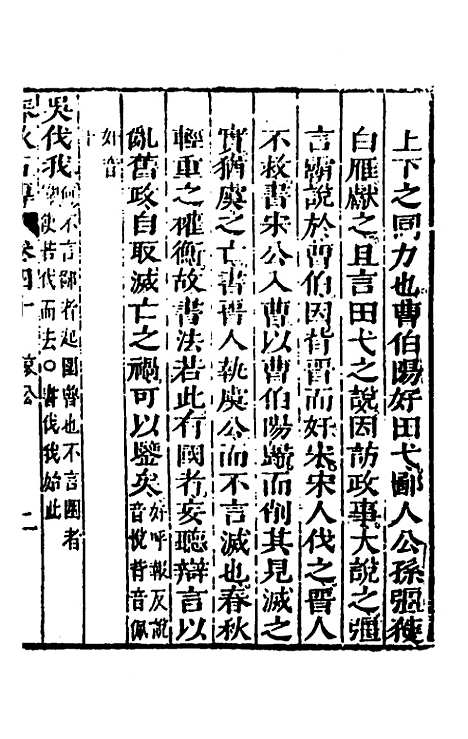 上下之同力也曹伯陽好田弋鄙人公孫彊獲
白雁獻之且言田弋之說因訪政事大說之彊
言霸說於曹伯因背晉而奸宋宋人伐之晉人
不救書宋公入曹以曹伯陽歸而削其見滅之
實猶虞之亡書晉人執虞公而不言滅也春秋
輕重之權衡故書法若此有國者妄聽辯言以
亂舊政自取滅亡之禍可以鑒矣好呼報反說
音悅背音佩
奸音
干
吳伐我何不言鄙者起圍魯也不言圍者
若伐而去○書伐我始此
卷四十 哀公 二